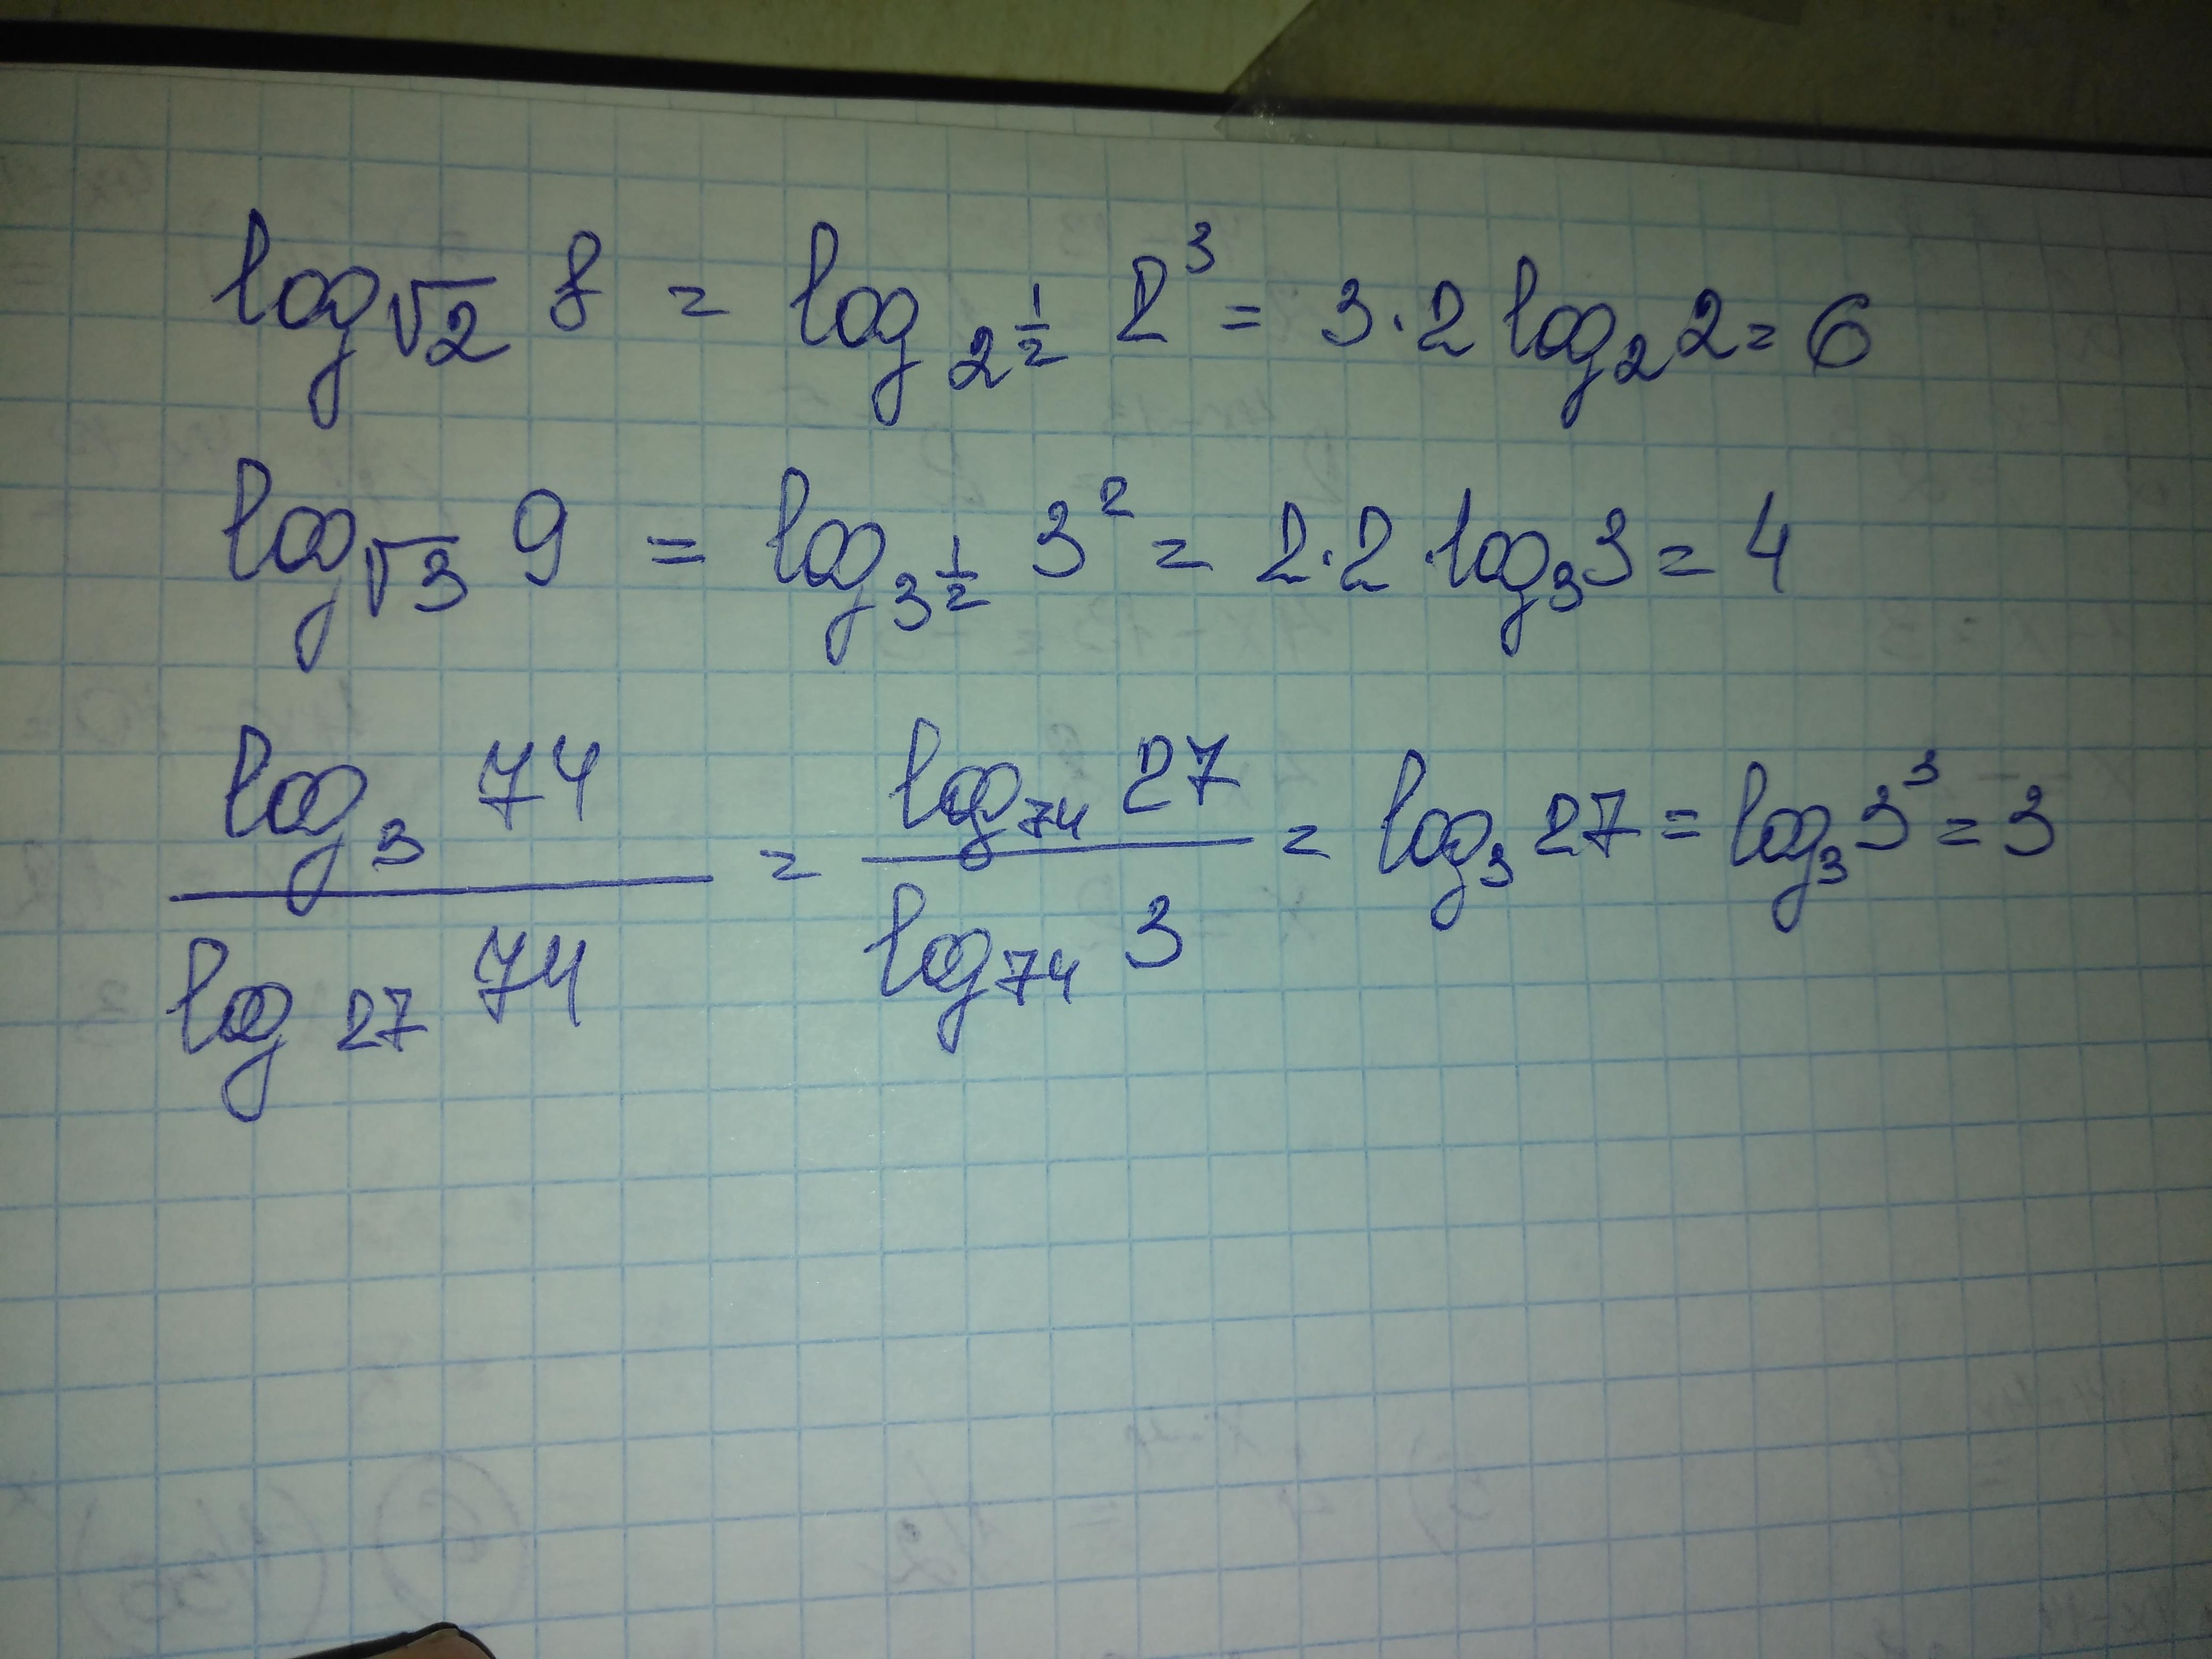 log_{√2} 8 = log_{2^{1/2}} 2^3 = 3·2 log_2 2 = 6
log_{√3} 9 = log_{3^{1/2}} 3^2 = 2·2·log_3 3 = 4
\frac{log_3 74}{log_{27} 74} = \frac{log_{74} 27}{log_{74} 3} = log_3 27 = log_3 3^3 = 3